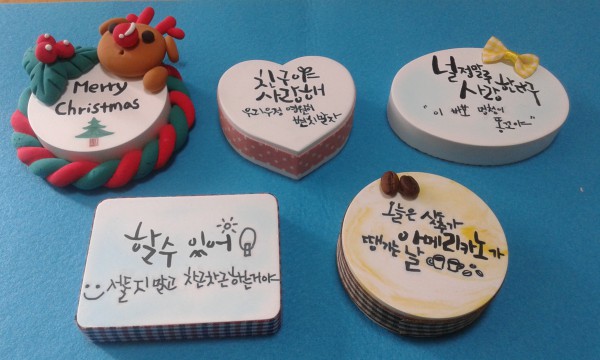 Merry
Christmas
친구야
사랑해
우리우정 영원히
변치말자
널 정말루
사랑한다구
" 이 바보 멍청이
똥꼬야~ "
할수 있어
서둘지 말고 차근차근 하는거야
오늘은
땡기는 날
아메리카노가